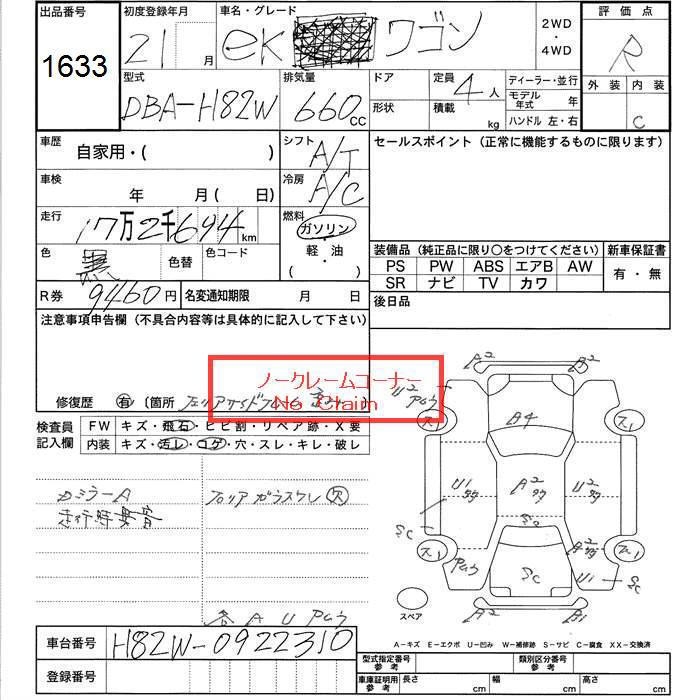 出品番号 初度登録年月 車名・グレード 2WD・4WD 評価点
1633 21 月 eK ワゴン R
型式 排気量 ドア 定員 ディーラー・並行 外装 内装
DBA-H82W 660 CC 形状 4 人 モデル年式 年
積載 kg ハンドル 左・右 C
車歴 自家用・( ) シフト A/T セールスポイント(正常に機能するものに限ります)
車検 年 月( 日) 冷房 A/C
走行 17万2千694 km 燃料 ガソリン・軽油 ( )
色 黒 色替 色コード
装備品(純正品に限り○をつけてください) 新車保証書
PS PW ABS エアB AW 有・無
SR ナビ TV カワ
R券 9460円 名変通知期限 月 日 後日品
注意事項申告欄(不具合内容等は具体的に記入して下さい)
ノークレームコーナー
No Claim
修復歴 有 〔箇所
検査員記入欄 FW キズ・飛石・ヒビ割・リペア跡・X要
内装 キズ・汚レ・コゲ・穴・スレ・キレ・破レ
カミラーA
走行時異音
A2 A2
U2
ス1 A4 ス1
U1 A2 U2
SC
ス1 A2 ス1
SC U1 SC
スペア A2 B1
各AU
A-キズ E-エクボ U-凹み W-補修跡 S-サビ C-腐食 XX-交換済
車台番号 H82W-0922310
登録番号
型式指定番号 参考 類別区分番号 参考
車庫証明用 参考 長さ cm 幅 cm 高さ cm